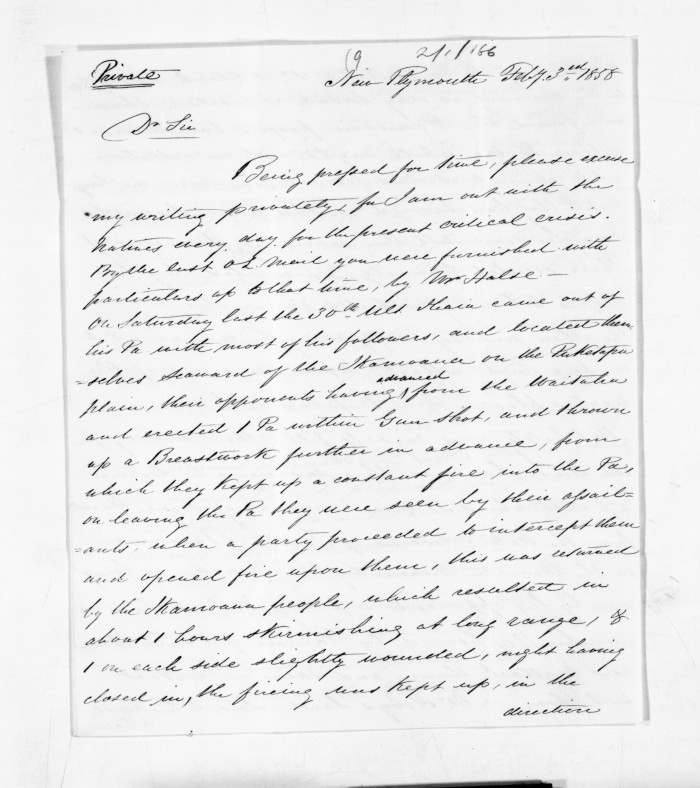 (9 2/1/166
Private
New Plymouth Feby. 3rd 1858
Dr Sir
Being pressed for time, please excuse
my writing privately, for I am out with the
Natives every day for the present critical crisis.
By the last O.L. Mail you were furnished with
particulars up to that time, by Mr Halse —
On Saturday last the 30th ult. Ihaia came out of
his Pa with most of his followers, and located them
=selves seaward of the Ikamoana on the Puketapu
plain, their opponents having advanced from the Waitaha
and erected 1 Pa within Gun shot, and thrown
up a Breastwork further in advance, from
which they kept up a constant fire into the Pa,
on leaving the Pa they were seen by their assail=
=ants, when a party proceeded to intercept them
and opened fire upon them, this was returned
by the Ikamoana people, which resulted in
about 1 hours skirmishing at long range, &
1 on each side slightly wounded, night having
closed in, the fireing was kept up, in the
direction